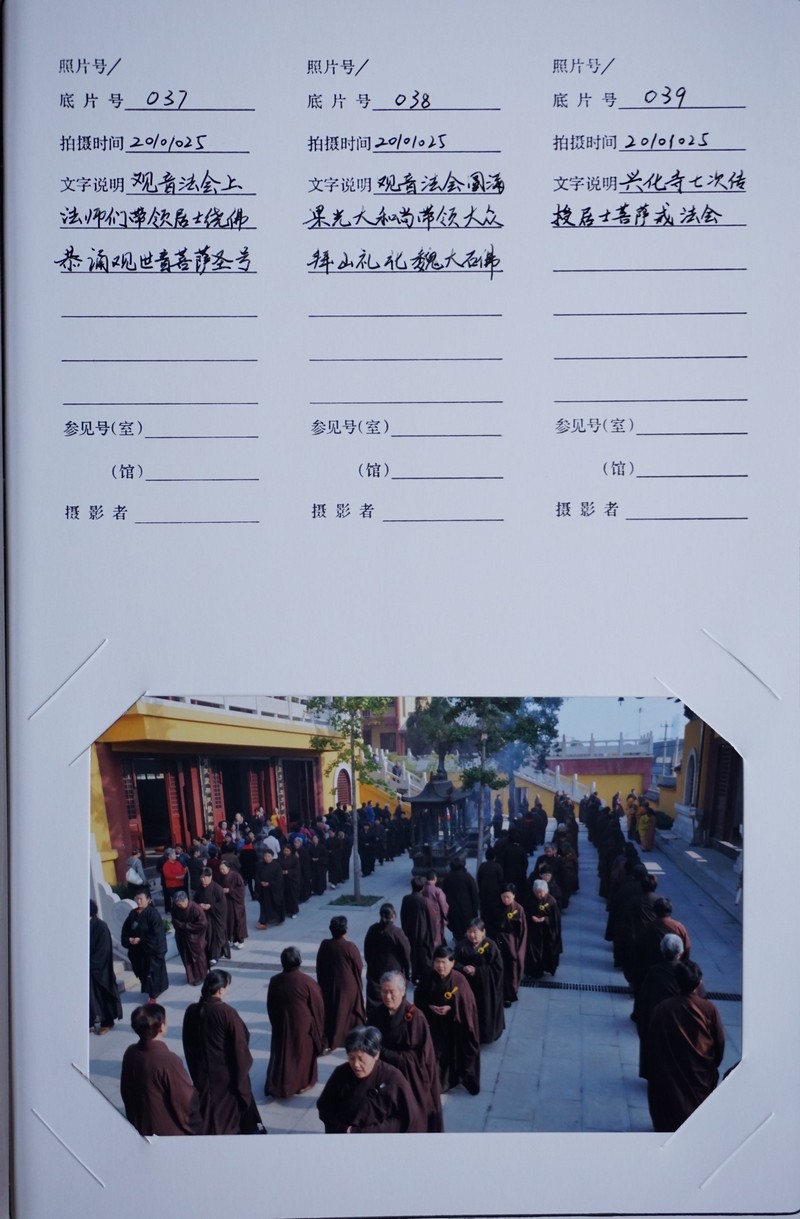 照片号/
底片号 037
拍摄时间 20101025
文字说明 观音法会上
法师们带领居士绕佛
恭诵观世音菩萨圣号
参见号(室)
(馆)
摄影者
照片号/
底片号 038
拍摄时间 20101025
文字说明 观音法会圆满
果光大和尚带领大众
拜山礼北魏大石佛
参见号(室)
(馆)
摄影者
照片号/
底片号 039
拍摄时间 20101025
文字说明 兴化寺七次传
授居士菩萨戒法会
参见号(室)
(馆)
摄影者